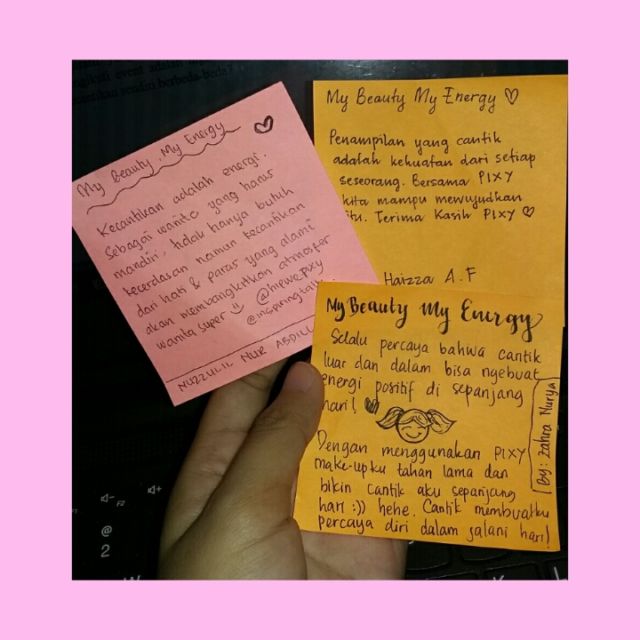 My Beauty, My Energy
Kecantikan adalah energi.
Sebagai wanita yang harus
mandiri, tidak hanya butuh
kecerdasan namun kecantikan
dari hati & paras yang alami
akan membangkitkan atmosfer
wanita super
@mpwePixy
@inspiringtalk...
NUZZULIL NUR ABDILL
My Beauty My Energy ♡
Penampilan yang cantik
adalah kekuatan dari setiap
seseorang. Bersama PIXY
kita mampu mewujudkan
itu. Terima Kasih PIXY ♡
Haizza A.F
My Beauty My Energy
Selalu percaya bahwa cantik
luar dan dalam bisa ngebuat
energi positif di sepanjang
hari!
Dengan menggunakan PIXY
make-upku tahan lama dan
bikin cantik aku sepanjang
hari :)) hehe. Cantik membuatku
percaya diri dalam jalani hari!
By: Zahra Nurya
F2
@
2
W